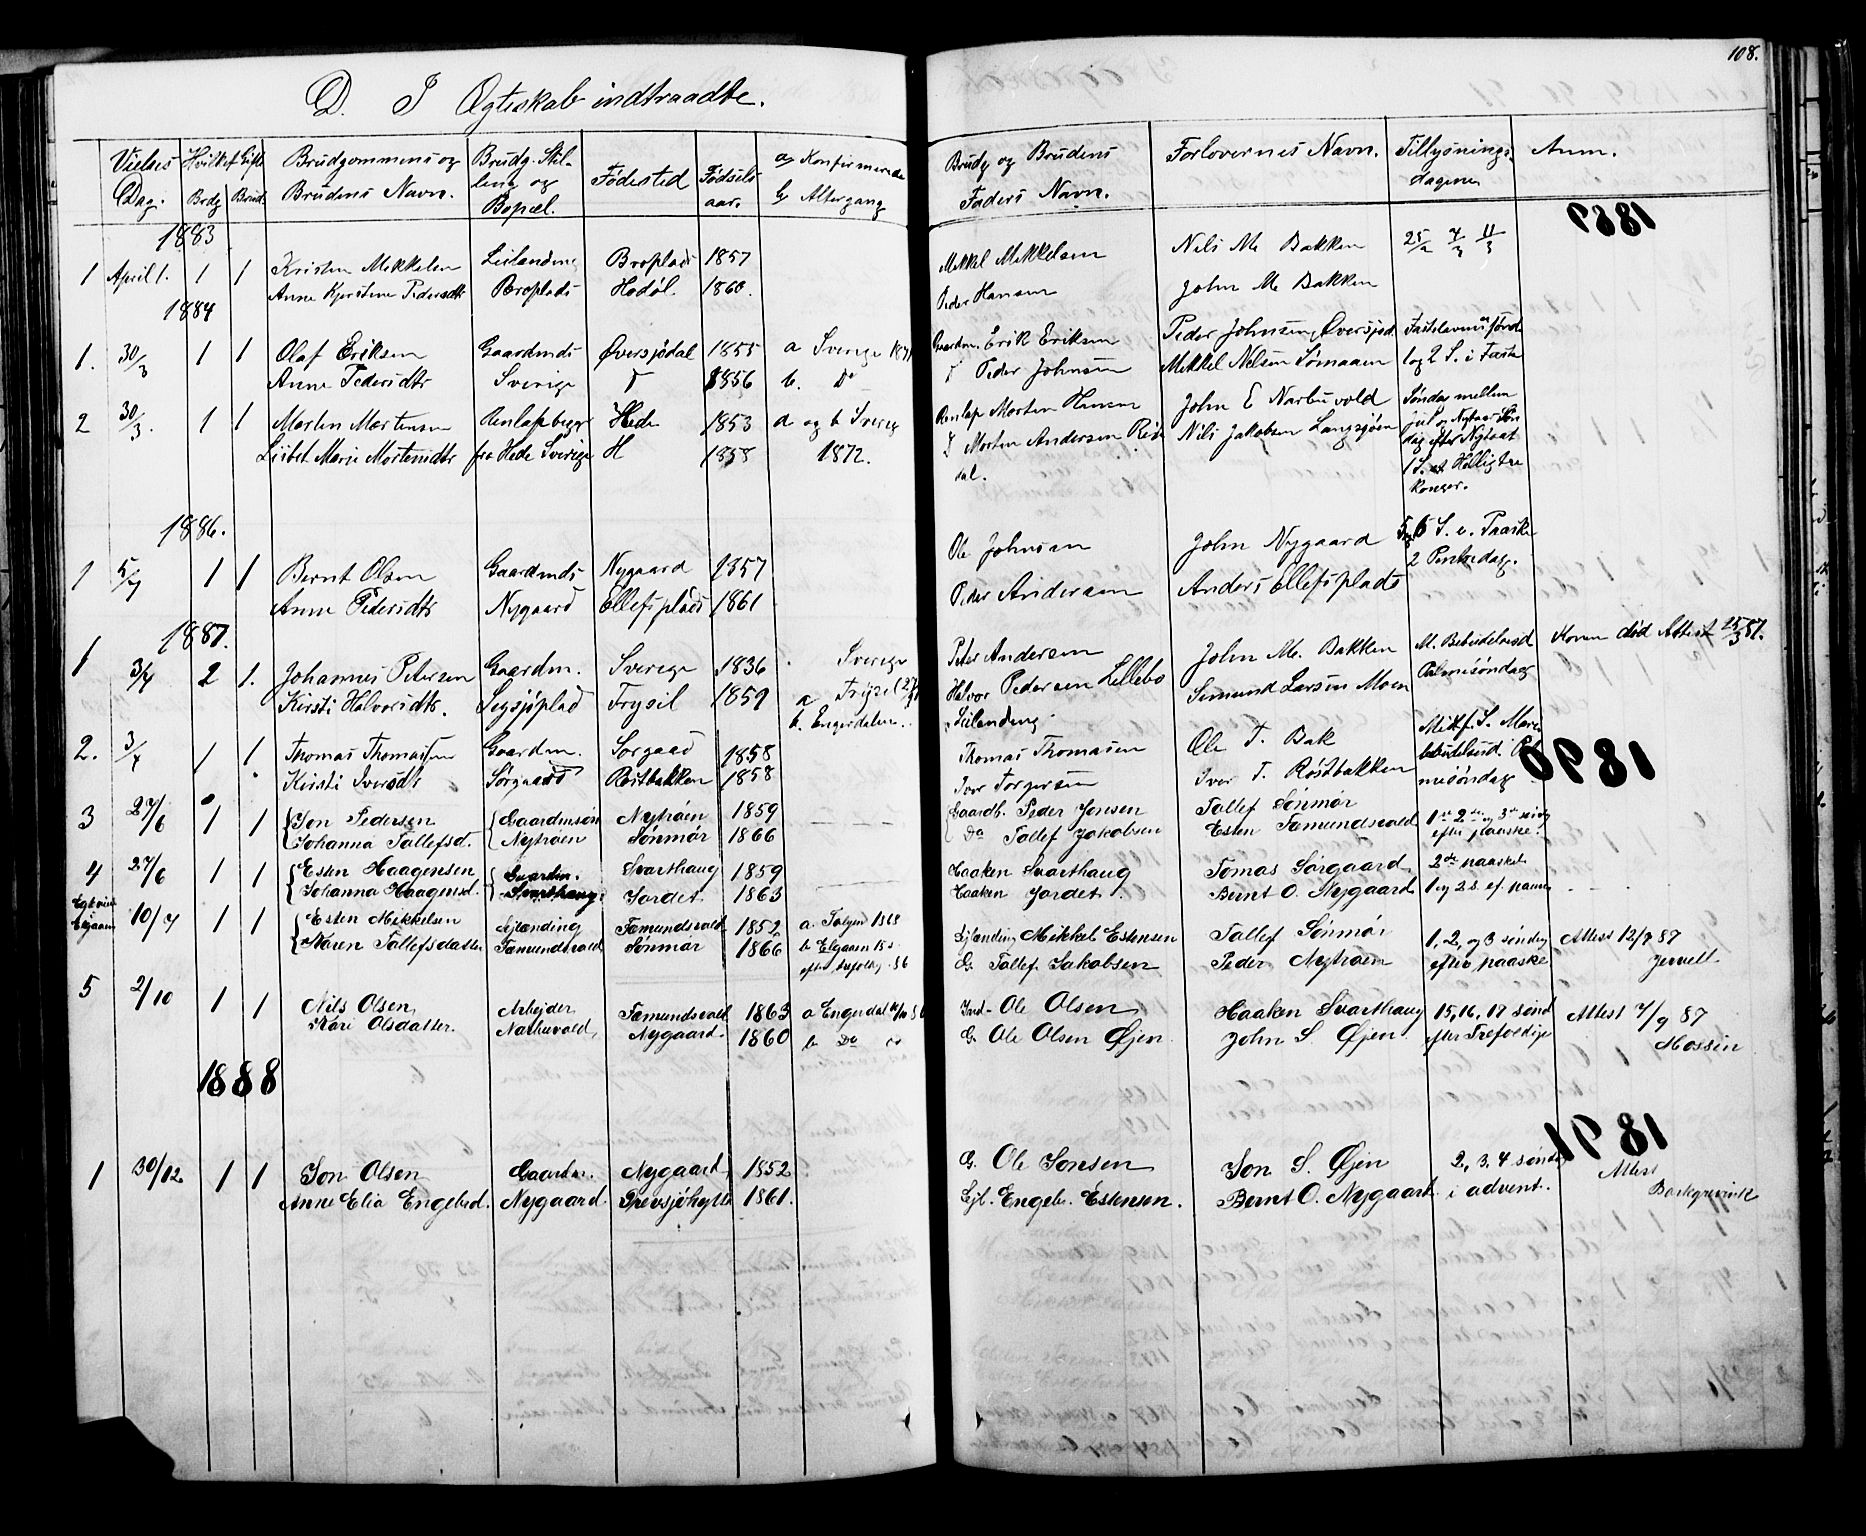 108.
D. I Ægteskab indtraadte.
Vielses Dag. Hvilket Gifte Brudgommens og Brudens Navn. Brudg. Stilling og Bopæl. Fødested Fødsels aar. a Konfirmerede b Altergang Brudg og Brudens Faders Navn. Forlovernes Navn. Tillysnings dagene Anm.
Brdg Brud.
1883
1 April 1. 1 1 Kristen Mikkelsen Broplads 1857 Mikkel Mikkelsen Nils M. Bakken 25/2 4/3 11/3
Anne Kjerstine Pedersdtr Broplads Hodøl. 1860. Peder Hansen John M. Bakken
1884
1. 30/3 1 1 Olaf Eriksen Gaardmds Øversjødal 1855 a Sverige 1871 Gaardm. Erik Eriksen Peder Johnsen Øversjød.
Anne Pedersdtr Sverige 1856 b. Do Peder Johnsen Mikkel Nelsen Sømaaen 1 og 2 S. i Faste
2 30/3. 1 1 Morten Mortensen Hede 1853 a og b Sverig Renlap Morten Hansen John E Narbuvold Søndag mellem
Lisbet Marie Mortensdtr fra Hede Sverige H 1858 1872. Morten Andersen Nils Jakobsen Langsjøen Jul og Nytaar Søndag efter Nytaar
dal. 1 S. Helligtre
Konger.
1886.
1 5/4 1 1 Bernt Olsen Gaardmds Nygaard 1857 Ole Johnsen John Nygaard 5, 6 S. e. Paaske
Anne Pedersdtr Nygaard Ellefsplads 1861 Peder Andersen Anders Ellefsplads 2 Pintsedag.
1887.
1 3/4 2 1. Johannes Petersen Gaardm. Sverige 1836 Sverige Peter Andersen John M. Bakken M. Bebudelsesd Konen død Attest 25/3 87.
Kirsti Halvorsdtr. Frysil 1859 a Trysil b. Engerdalen. Halvor Pedersen Lillebo Semund Larsen Moen Palmesøndag
2. 3/4 1 1 Thomas Thomassen Gaardm. Sørgaad 1858 Thomas Thomasen Ole T. Bak Midtf. S. Marie
Kirsti Iversdtr Sørgaard Røstbakken 1858 Iver Torgersen Iver T. Røstbakken
3 27/6 1 1 Jon Pedersen Gaardmsøn Nytrøen 1859 Gaardb. Peder Jonsen Tallef Sønmør 1ste 2den og 3die sønd
Johanna Tallefsd. Nytrøen Sønmør 1866 Do Tallef Jakobsen Esten Tæmundsvold efter paaske.
4 27/6 1 1 Esten Haagensen Gaardm. Svarthaug 1859 Haaken Svarthaug Tomas Sørgaard 2den paasked.
Johanna Haagensd. Svarthaug Jordet 1863 Haaken Jordet. Bernt O. Nygaard 1 og 2 s. ef. paaske
10/7 1 1 Esten Mikkelsen Lejlænding Tæmundsvold 1852 a. Tolgen 1868 Lejlænding Mikkel Estensen Tallef Sønmør 1, 2, og 3 søndag Attest 12/7 87
Karen Tallefsdatter Tæmundsvold Sønmør 1866 b. Elgaaen G. Tallef Jakobsen Peder Nytrøen efter paaske Jervell
5 2/10 1 1 Nils Olsen, Arbejder Tæmundsvold 1863 a Engerdal Ind. Ole Olsen Haaken Svarthaug 15, 16, 17 sønd Attest 7/9 87
Kari Olsdatter. Narbuvold, Nygaard. 1860 b. Do G. Ole Olsen Øjen John S. Øjen efter Trefoldigh Mossin
1888
1 30/12 1 1 Jon Olsen Gaardm. Nygaard 1852 G. Ole Jonsen Jon S. Øjen 2, 3, 4 sønda Attest
Anne Elia Engebd. Nygaard. Drevsjøhytte 1861. Lejl. Engeb. Estensen. Bernt O. Nygaard. i advent.